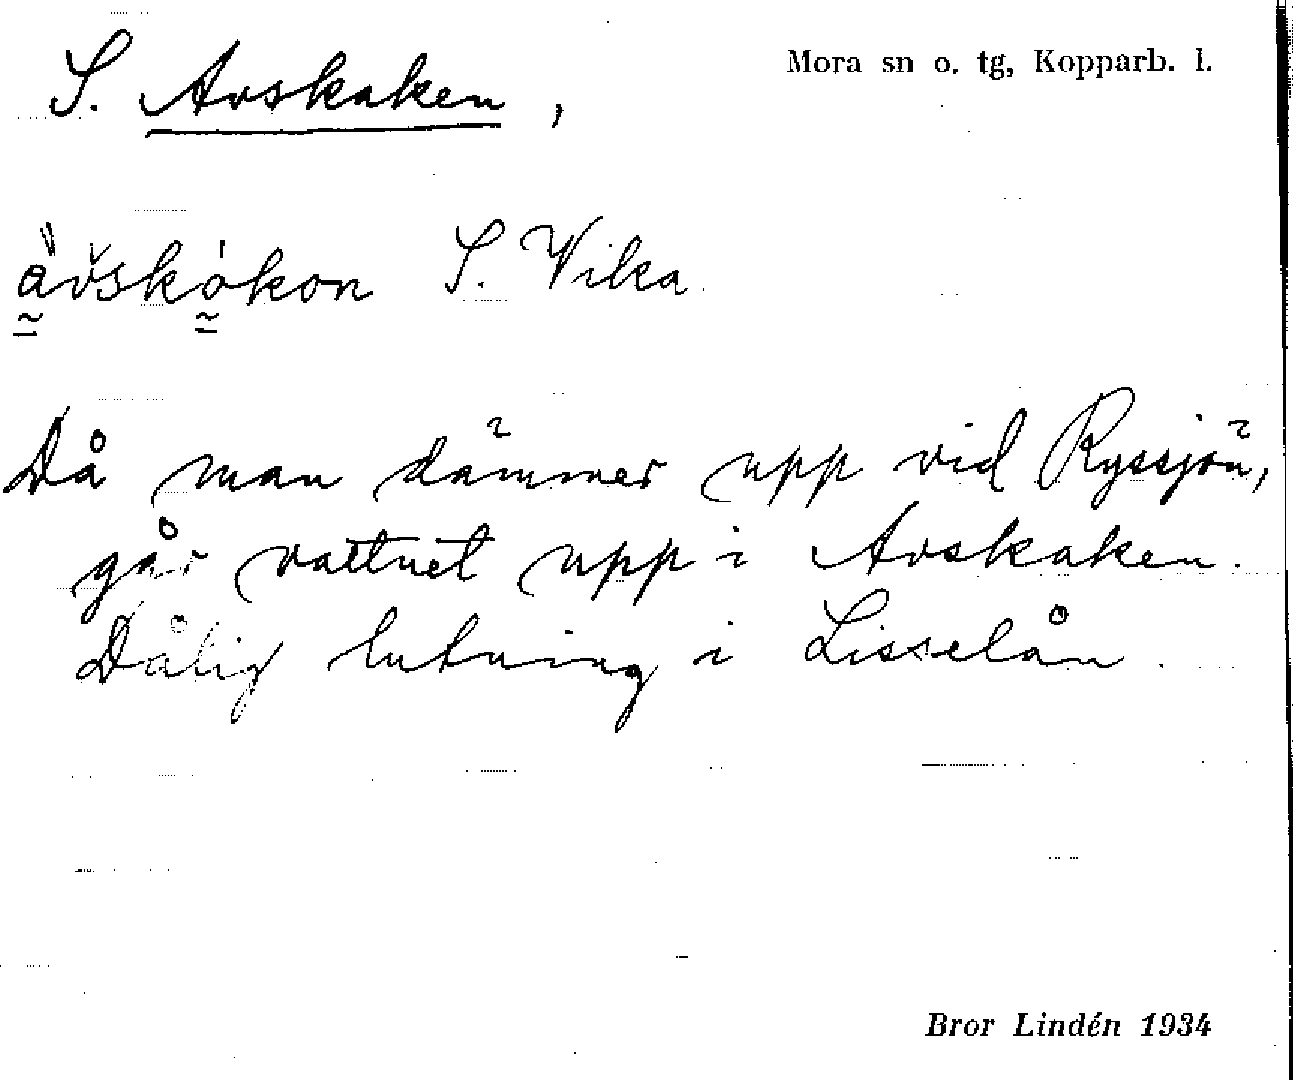 S. Avskaken, Mora sn o. tg, Kopparb. l.
àvskòkon S. Vika
Då man dämmer upp vid Ryssjön,
går vattnet upp i Avskaken.
Dålig lutning i Lisselån.
Bror Lindén 1934